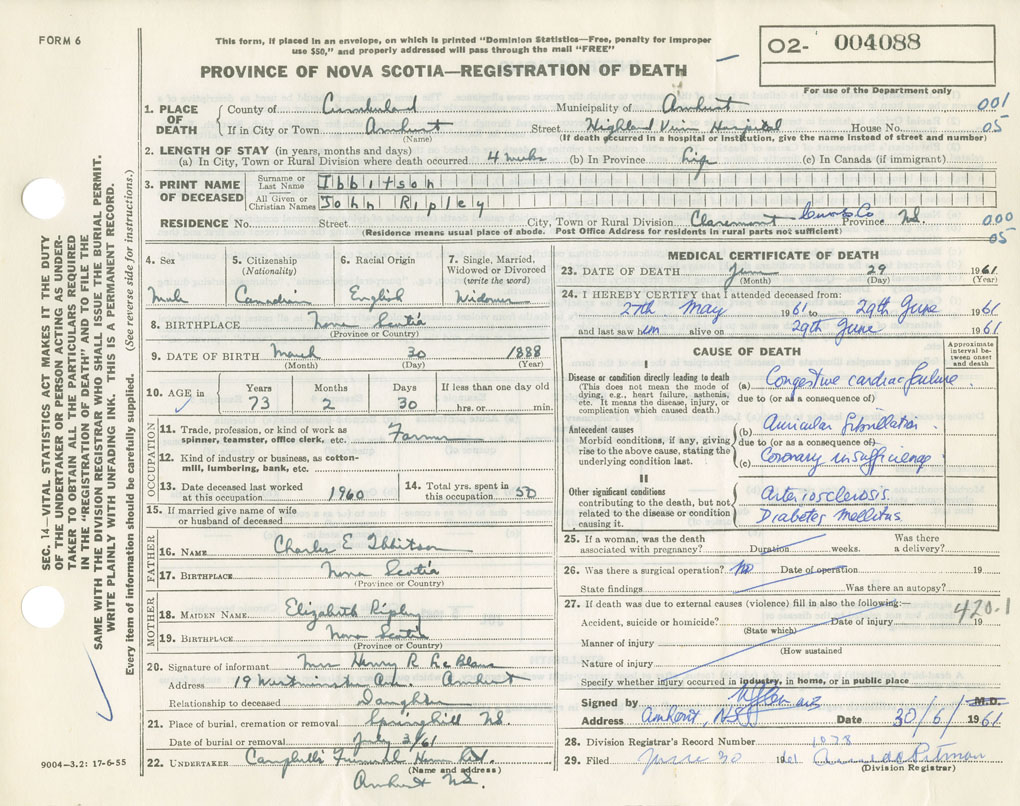 FORM 6
This form, if placed in an envelope, on which is printed "Dominion Statistics—Free, penalty for improper
use $50," and properly addressed will pass through the mail "FREE"
PROVINCE OF NOVA SCOTIA—REGISTRATION OF DEATH
02- 004088
For use of the Department only
1. PLACE OF DEATH County of Cumberland Municipality of Amherst 001
If in City or Town Amherst Street Highland View Hospital House No. 05
(Name) (If death occurred in a hospital or institution, give the name instead of street and number)
2. LENGTH OF STAY (in years, months and days)
(a) In City, Town or Rural Division where death occurred 4 wks (b) In Province life (c) In Canada (if immigrant)
3. PRINT NAME OF DECEASED
Surname or Last Name Ibbitson
All Given or Christian Names John Ripley
RESIDENCE No. Street City, Town or Rural Division Claremont Cumb Co Province NS 000
(Residence means usual place of abode. Post Office Address for residents in rural parts not sufficient) 05
4. Sex
Male
5. Citizenship
(Nationality)
Canadian
6. Racial Origin
English
7. Single, Married,
Widowed or Divorced
(write the word)
Widower
8. BIRTHPLACE Nova Scotia
(Province or Country)
9. DATE OF BIRTH March 30 1888
(Month) (Day) (Year)
10. AGE in Years Months Days If less than one day old
73 2 30 hrs. or min.
OCCUPATION
11. Trade, profession, or kind of work as
spinner, teamster, office clerk, etc. Farmer
12. Kind of industry or business, as cotton-
mill, lumbering, bank, etc.
13. Date deceased last worked
at this occupation 1960
14. Total yrs. spent in
this occupation 50
15. If married give name of wife
or husband of deceased
FATHER
16. NAME Charles E Ibbitson
17. BIRTHPLACE Nova Scotia
(Province or Country)
MOTHER
18. MAIDEN NAME Elizabeth Ripley
19. BIRTHPLACE Nova Scotia
(Province or Country)
20. Signature of informant Mrs Henry R LeBlanc
Address 19 Westminster Ave. Amherst
Relationship to deceased Daughter
21. Place of burial, cremation or removal Springhill NS.
Date of burial or removal July 2/61
22. UNDERTAKER Campbell's Funeral Home Ltd.
(Name and address)
Amherst NS.
MEDICAL CERTIFICATE OF DEATH
23. DATE OF DEATH June 29 1961
(Month) (Day) (Year)
24. I HEREBY CERTIFY that I attended deceased from:
27th May 1961 to 29th June 1961
and last saw him alive on 29th June 1961
CAUSE OF DEATH
Approximate
interval be-
tween onset
and death
I
Disease or condition directly leading to death
(This does not mean the mode of
dying, e.g., heart failure, asthenia,
etc. It means the disease, injury, or
complication which caused death.)
(a) Congestive cardiac failure.
due to (or as a consequence of)
Antecedent causes
Morbid conditions, if any, giving
rise to the above cause, stating the
underlying condition last.
(b) Auricular fibrillation
due to (or as a consequence of)
(c) Coronary insufficiency
II
Other significant conditions
contributing to the death, but not
related to the disease or condition
causing it.
Arteriosclerosis.
Diabetes Mellitus
25. If a woman, was the death
associated with pregnancy? Duration weeks. Was there
a delivery?
26. Was there a surgical operation? No Date of operation 19
State findings Was there an autopsy?
27. If death was due to external causes (violence) fill in also the following:— 420.1
Accident, suicide or homicide? Date of injury 19
(State which)
Manner of injury
(How sustained
Nature of injury
Specify whether injury occurred in industry, in home, or in public place
Signed by M.D.
Address Amherst, NS Date 30/6/1961
28. Division Registrar's Record Number 1078
29. Filed June 30 1961 Pitman
(Division Registrar)
SEC. 14—VITAL STATISTICS ACT MAKES IT THE DUTY
OF THE UNDERTAKER OR PERSON ACTING AS UNDER-
TAKER TO OBTAIN ALL THE PARTICULARS REQUIRED
IN THE "REGISTRATION OF DEATH" AND TO FILE THE
SAME WITH THE DIVISION REGISTRAR WHO SHALL ISSUE THE BURIAL PERMIT.
WRITE PLAINLY WITH UNFADING INK. THIS IS A PERMANENT RECORD.
Every item of information should be carefully supplied. (See reverse side for instructions.)
9004—3.2: 17-6-55